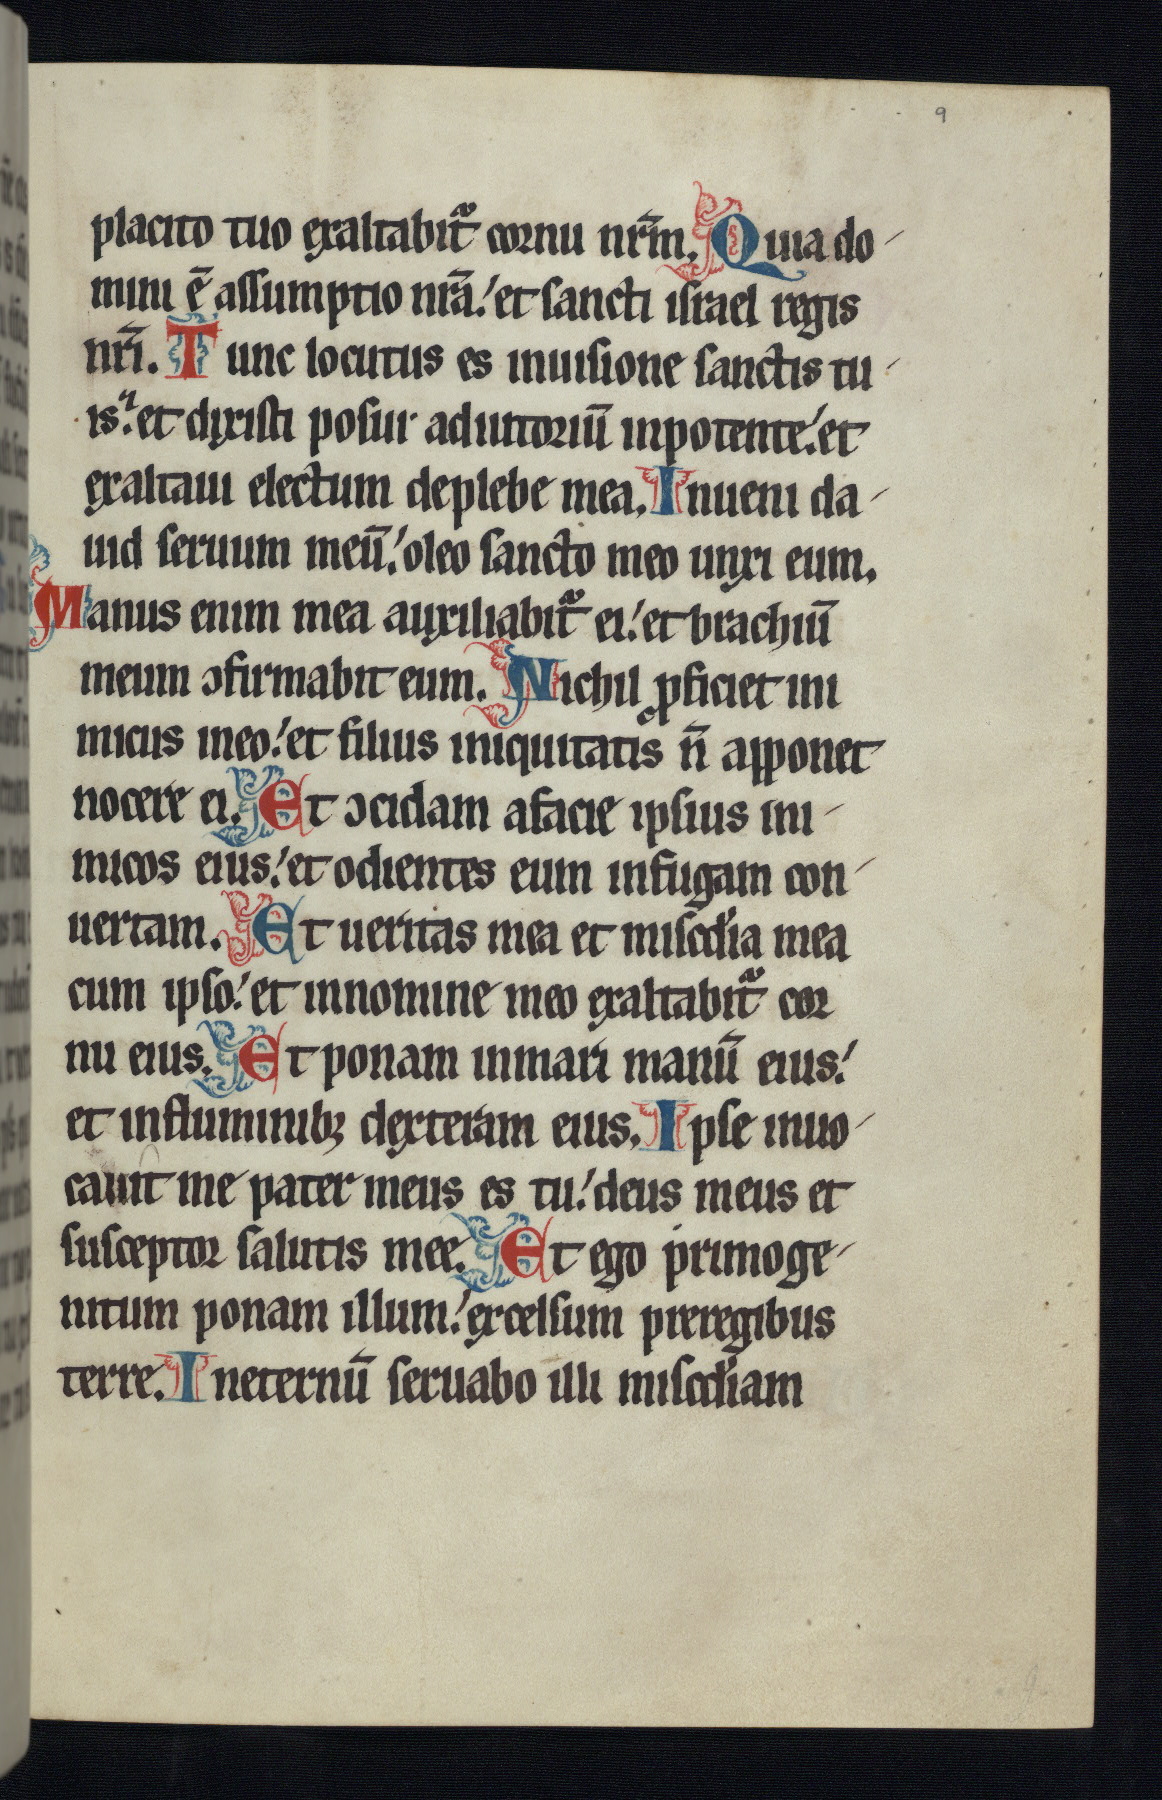 9
placito tuo exaltabit᷑ cornu nr̃m. Quia do
mini ẽ assumptio nr̃a: et sancti israel regis
nr̃i. Tunc locutus es inuisione sanctis tu
is: et dixisti posui adiutoriũ inpotente: et
exaltaui electum deplebe mea. Inueni da
uid seruum meũ: oleo sancto meo unxi eum.
Manus enim mea auxiliabit᷑ ei: et brachiũ
meum ɔfirmabit eum. Nichil ꝓficiet ini
micus ineo: et filius iniquitatis ñ apponet
nocere ei. Et ɔcidam afacie ipsius ini
micos eius: et odientes eum infugam con
uertam. Et ueritas mea et misc̃dia mea
cum ipso: et innomine meo exaltabit᷑ cor
nu eius. Et ponam inmari manũ eius:
et influminibꝫ dexteram eius. Ipse inuo
cauit me pater meus es tu: deus meus et
susceptor salutis mee. Et ego primoge
nitum ponam illum: excelsum preregibus
terre. Ineternũ seruabo illi misc̃diam